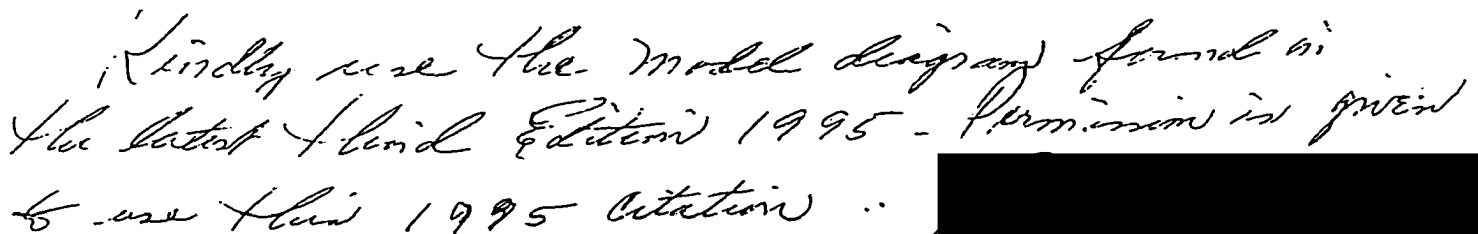 Kindly use the model diagram found in
the latest third Edition 1995 - Permission is given
to use this 1995 citation ..